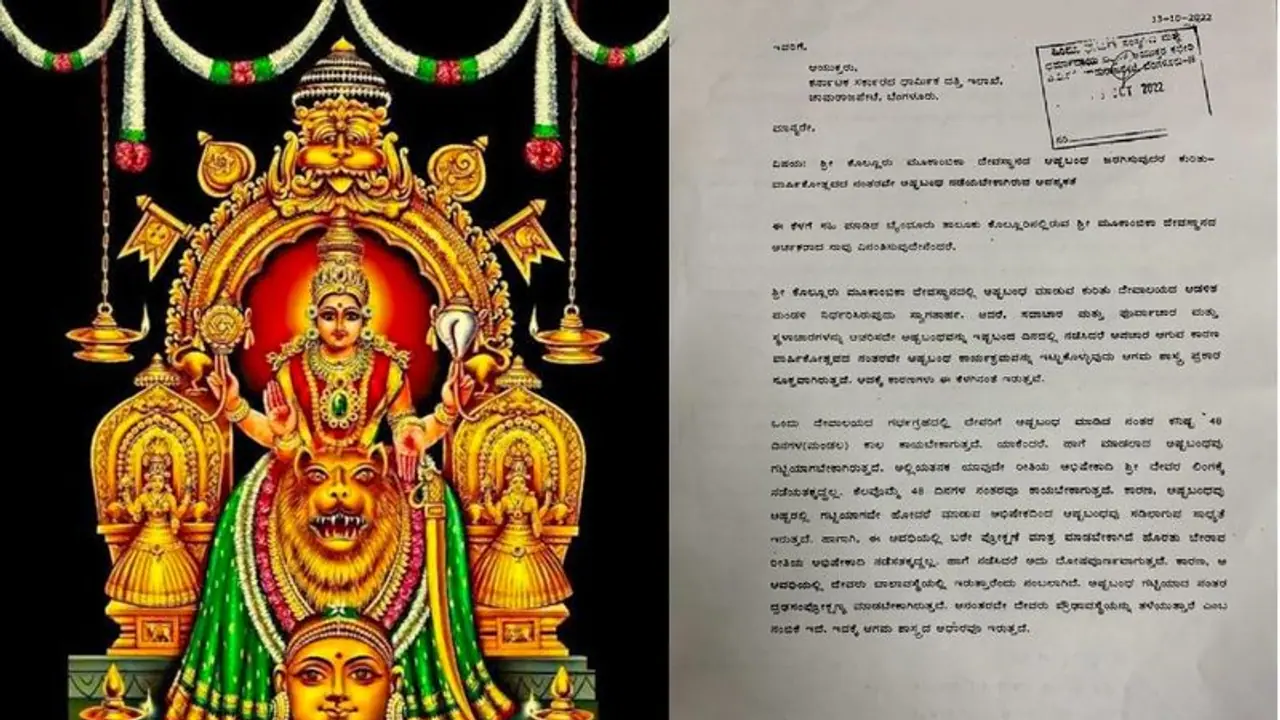 13-10-2022
ಇವರಿಗೆ,
ಹಿಂದೂ ಧಾರ್ಮಿಕ ಸಂಸ್ಥೆಗಳ ಮತ್ತು
OCT 2022
ಆಯುಕ್ತರು,
ಕರ್ನಾಟಕ ಸರ್ಕಾರದ ಧಾರ್ಮಿಕ ದತ್ತಿ ಇಲಾಖೆ,
ಚಾಮರಾಜಪೇಟೆ, ಬೆಂಗಳೂರು.
ಮಾನ್ಯರೇ,
ವಿಷಯ: ಶ್ರೀ ಕೊಲ್ಲೂರು ಮೂಕಾಂಬಿಕಾ ದೇವಸ್ಥಾನದ ಅಷ್ಟಬಂಧ ಜರಗಿಸುವುದರ ಕುರಿತು-
ವಾರ್ಷಿಕೋತ್ಸವದ ನಂತರವೇ ಅಷ್ಟಬಂಧ ನಡೆಯಬೇಕಾಗಿರುವ ಅವಶ್ಯಕತೆ
ಈ ಕೆಳಗೆ ಸಹಿ ಮಾಡಿದ ಬೈಂದೂರು ತಾಲೂಕು ಕೊಲ್ಲೂರಿನಲ್ಲಿರುವ ಶ್ರೀ ಮೂಕಾಂಬಿಕಾ ದೇವಸ್ಥಾನದ
ಅರ್ಚಕರಾದ ನಾವು ವಿನಂತಿಸುವುದೇನೆಂದರೆ.
ಶ್ರೀ ಕೊಲ್ಲೂರು ಮೂಕಾಂಬಿಕಾ ದೇವಸ್ಥಾನದಲ್ಲಿ ಅಷ್ಟಬಂಧ ಮಾಡುವ ಕುರಿತು ದೇವಾಲಯದ ಆಡಳಿತ
ಮಂಡಳಿ ನಿರ್ಧರಿಸಿರುವುದು ಸ್ವಾಗತಾರ್ಹ. ಆದರೆ, ಸದಾಚಾರ ಮತ್ತು ಪೂರ್ವಾಚಾರ ಮತ್ತು
ಸ್ಥಳಾಚಾರಗಳನ್ನು ಆಚರಿಸದೇ ಅಷ್ಟಬಂಧವನ್ನು ಇಷ್ಟಬಂದ ದಿನದಲ್ಲಿ ನಡೆಸಿದರೆ ಅಪಚಾರ ಆಗುವ ಕಾರಣ
ವಾರ್ಷಿಕೋತ್ಸವದ ನಂತರವೇ ಅಷ್ಟಬಂಧ ಕಾರ್ಯಕ್ರಮವನ್ನು ಇಟ್ಟುಕೊಳ್ಳುವುದು ಆಗಮ ಶಾಸ್ತ್ರ ಪ್ರಕಾರ
ಸೂಕ್ತವಾಗಿರುತ್ತದೆ. ಅದಕ್ಕೆ ಕಾರಣಗಳು ಈ ಕೆಳಗಿನಂತೆ ಇರುತ್ತವೆ.
ಒಂದು ದೇವಾಲಯದ ಗರ್ಭಗೃಹದಲ್ಲಿ ದೇವರಿಗೆ ಅಷ್ಟಬಂಧ ಮಾಡಿದ ನಂತರ ಕನಿಷ್ಟ 48
ದಿನಗಳ(ಮಂಡಲ) ಕಾಲ ಕಾಯಬೇಕಾಗುತ್ತದೆ. ಯಾಕೆಂದರೆ. ಹಾಗೆ ಮಾಡಲಾದ ಅಷ್ಟಬಂಧವು
ಗಟ್ಟಿಯಾಗಬೇಕಾಗಿರುತ್ತದೆ. ಅಲ್ಲಿಯತನಕ ಯಾವುದೇ ರೀತಿಯ ಅಭಿಷೇಕಾದಿ ಶ್ರೀ ದೇವರ ಲಿಂಗಕ್ಕೆ
ನಡೆಯತಕ್ಕದ್ದಲ್ಲ. ಕೆಲವೊಮ್ಮೆ 48 ದಿನಗಳ ನಂತರವೂ ಕಾಯಬೇಕಾಗುತ್ತದೆ. ಕಾರಣ, ಅಷ್ಟಬಂಧವು
ಅಷ್ಟರಲ್ಲಿ ಗಟ್ಟಿಯಾಗದೇ ಹೋದರೆ ಮಾಡುವ ಅಭಿಷೇಕದಿಂದ ಅಷ್ಟಬಂಧವು ಸಡಿಲಾಗುವ ಸಾಧ್ಯತೆ
ಇರುತ್ತದೆ. ಹಾಗಾಗಿ, ಈ ಅವಧಿಯಲ್ಲಿ ಬರೇ ಪ್ರೋಕ್ಷಣೆ ಮಾತ್ರ ಮಾಡಬೇಕಾಗಿದೆ ಹೊರತು ಬೇರಾವ
ರೀತಿಯ ಅಭಿಷೇಕಾದಿ ನಡೆಸತಕ್ಕದ್ದಲ್ಲ. ಹಾಗೆ ನಡೆಸಿದರೆ ಅದು ದೋಷಪೂರ್ಣವಾಗುತ್ತದೆ. ಕಾರಣ, ಆ
ಅವಧಿಯಲ್ಲಿ ದೇವರು ಬಾಲಾವಸ್ಥೆಯಲ್ಲಿ ಇರುತ್ತಾರೆಂದು ನಂಬಲಾಗಿದೆ. ಅಷ್ಟಬಂಧ ಗಟ್ಟಿಯಾದ ನಂತರ
ದೃಢಸಂಪ್ರೋಕ್ಷಣ್ಯ ಮಾಡಬೇಕಾಗಿರುತ್ತದೆ. ಆನಂತರವೇ ದೇವರು ಪ್ರೌಢಾವಸ್ಥೆಯನ್ನು ತಳೆಯುತ್ತಾರೆ ಎಂಬ
ನಂಬಿಕೆ ಇದೆ. ಇದಕ್ಕೆ ಆಗಮ ಶಾಸ್ತ್ರದ ಆಧಾರವೂ ಇರುತ್ತದೆ.